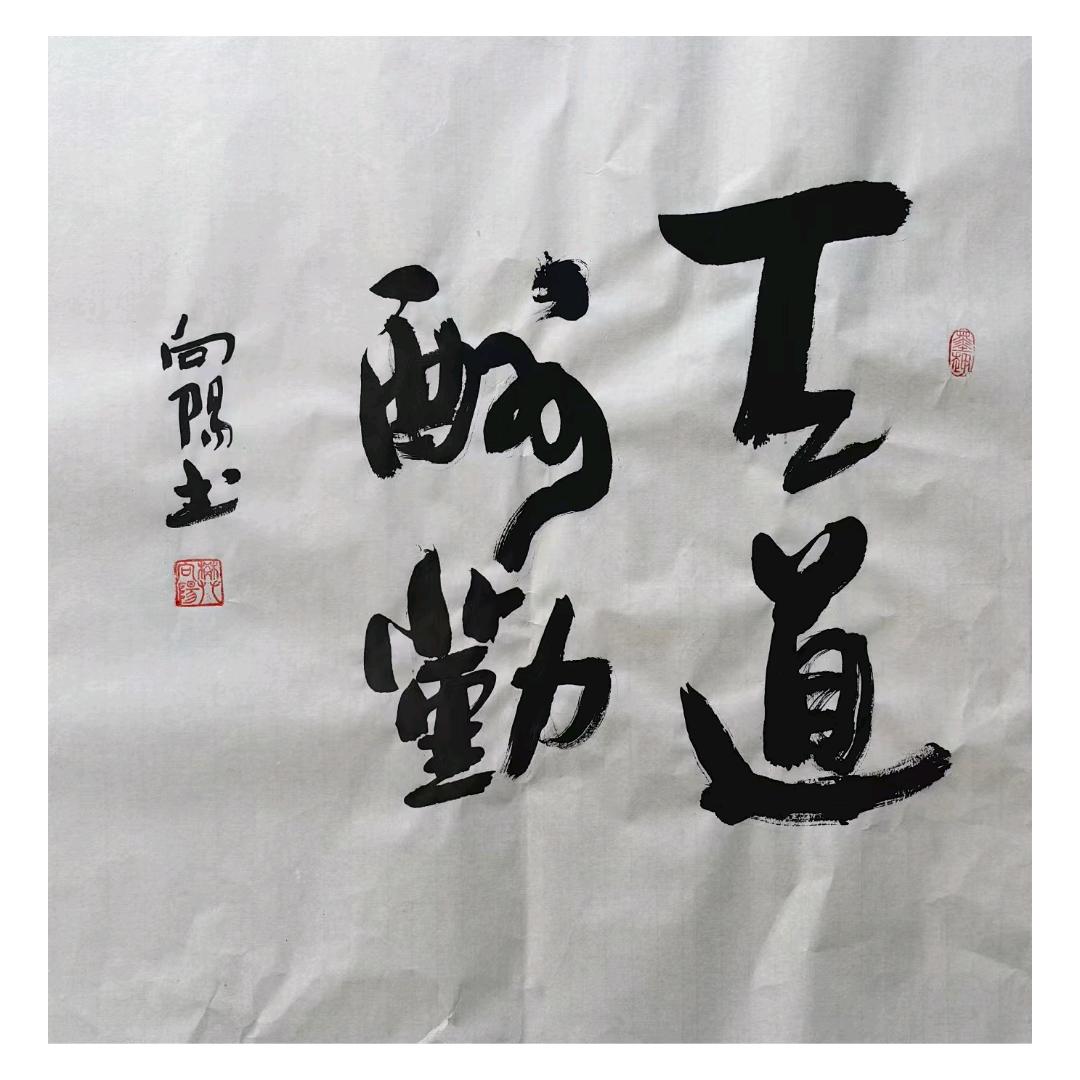 天道
酬勤
向陽书